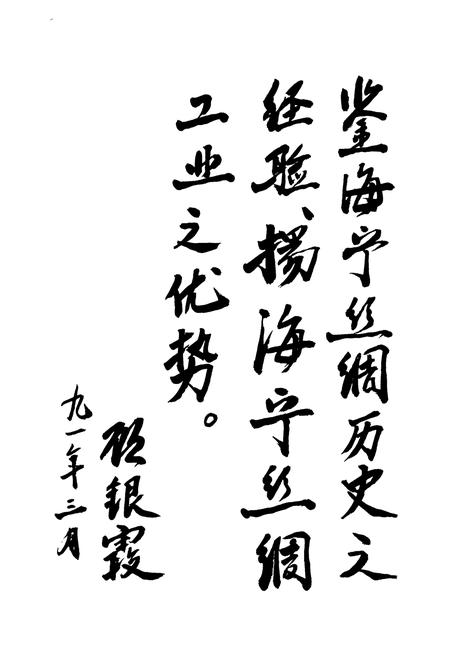 鉴海宁丝绸历史之
经验、扬海宁丝绸
工业之优势。
顾银霞
九一年三月